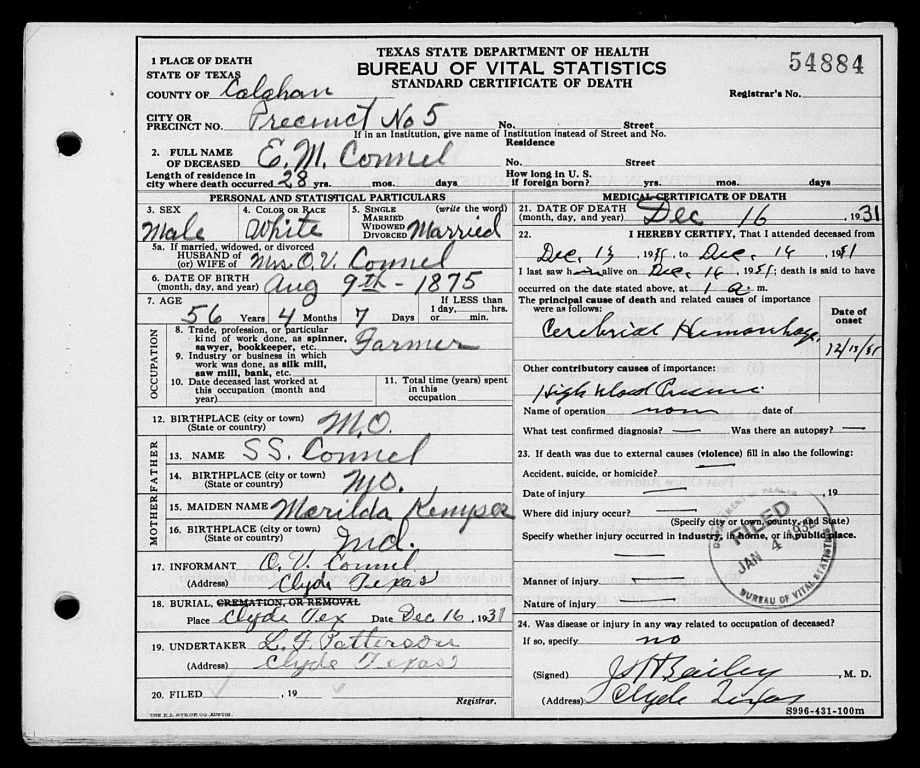 TEXAS STATE DEPARTMENT OF HEALTH
BUREAU OF VITAL STATISTICS
STANDARD CERTIFICATE OF DEATH
54884
Registrar's No.
1 PLACE OF DEATH
STATE OF TEXAS
COUNTY OF Calahan
CITY OR
PRECINCT NO. Precinct No 5 No. Street
If in an Institution, give name of Institution instead of Street and No.
Residence
2. FULL NAME
OF DECEASED E. M. Connel No. Street
Length of residence in
city where death occurred 28 yrs. mos. days
How long in U. S.
if foreign born? yrs. mos. days
PERSONAL AND STATISTICAL PARTICULARS
3. SEX Male
4. COLOR OR RACE White
5. SINGLE (write the word)
MARRIED
WIDOWED
DIVORCED Married
5a. If married, widowed, or divorced
HUSBAND OF
(or) WIFE OF Mrs O. V. Connel
6. DATE OF BIRTH
(month, day, and year) Aug 9th - 1875
7. AGE
56 Years 4 Months 7 Days
If LESS than
1 day, hrs.
or min.
OCCUPATION
8. Trade, profession, or particular
kind of work done, as spinner,
sawyer, bookkeeper, etc. Farmer
9. Industry or business in which
work was done, as silk mill,
saw mill, bank, etc.
10. Date deceased last worked at
this occupation (month and
year)
11. Total time (years) spent
in this
occupation
12. BIRTHPLACE (city or town)
(State or country) M.O.
FATHER
13. NAME S S. Connel
14. BIRTHPLACE (city or town)
(State or country) MO.
MOTHER
15. MAIDEN NAME Marilda
16. BIRTHPLACE (city or town)
(State or country) Md.
17. INFORMANT O. V. Connel
(Address) Clyde Texas
18. BURIAL, CREMATION, OR REMOVAL
Place Clyde Tex Date Dec 16, 1931
19. UNDERTAKER L. F. Patterson
(Address) Clyde Texas
20. FILED , 19
Registrar.
MEDICAL CERTIFICATE OF DEATH
21. DATE OF DEATH
(month, day, and year) Dec 16, 1931
22. I HEREBY CERTIFY, That I attended deceased from
Dec. 13, 1931, to Dec. 16, 1931
I last saw him alive on Dec. 16, 1931; death is said to have
occurred on the date stated above, at 1 a. m.
The principal cause of death and related causes of importance
were as follows:
Date of
onset
Cerebrial Hemorrhage, 12/13/31
Other contributory causes of importance:
High blood Pressure
Name of operation none date of
What test confirmed diagnosis? — Was there an autopsy? —
23. If death was due to external causes (violence) fill in also the following:
Accident, suicide, or homicide? —
Date of injury — , 19
Where did injury occur? —
(Specify city or town, county, and State)
Specify whether injury occurred in industry, in home, or in public place.
—
Manner of injury —
Nature of injury —
DEPARTMENT OF HEALTH
FILED
JAN 4 1932
BUREAU OF VITAL STATISTICS
24. Was disease or injury in any way related to occupation of deceased?
If so, specify no
(Signed) Bailey, M. D.
(Address) Clyde Texas
S996-431-100m